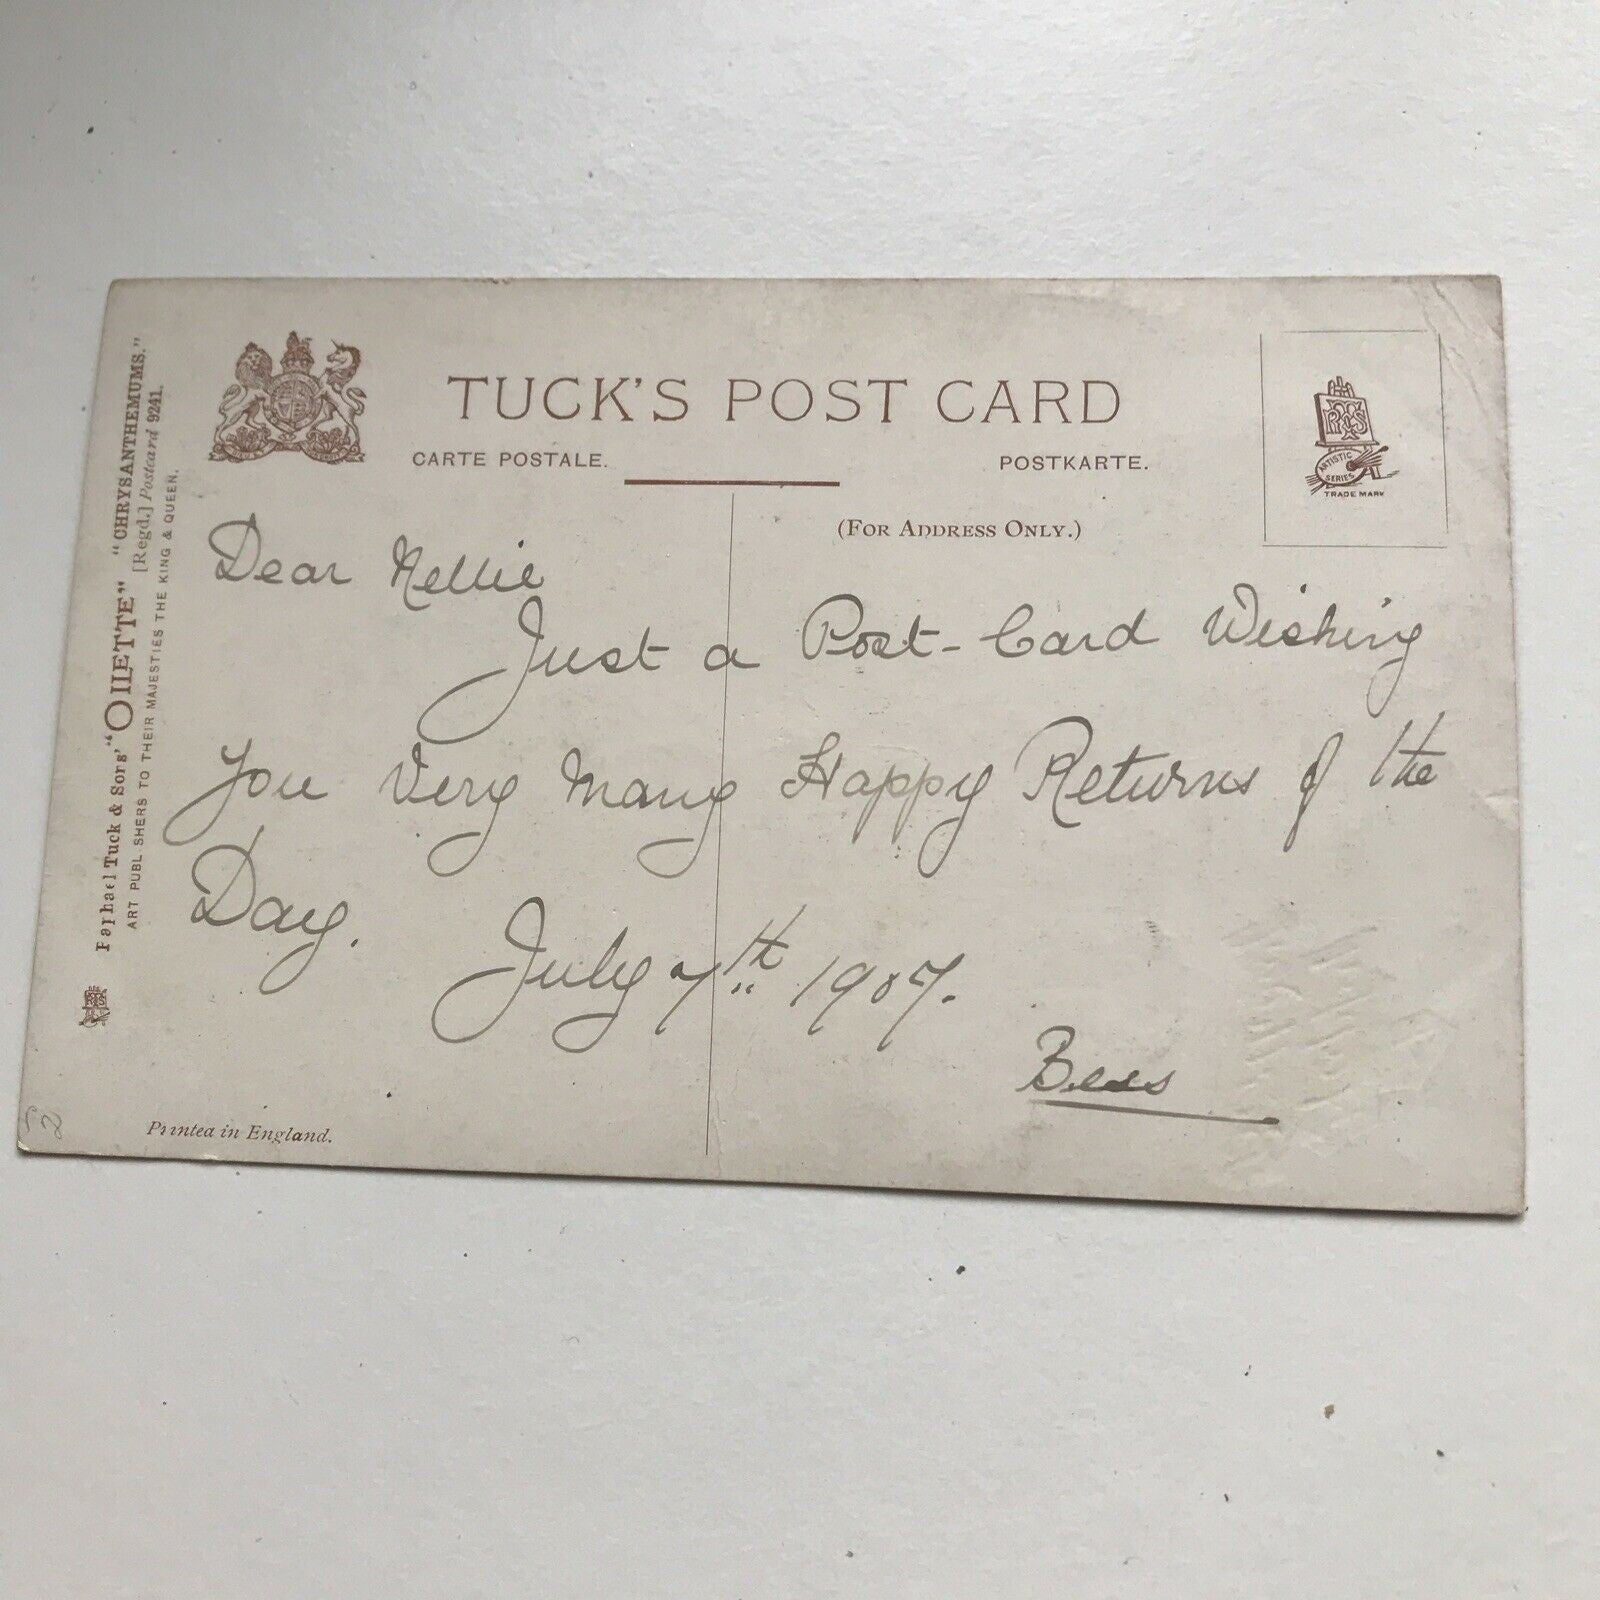 TUCK'S POST CARD
CARTE POSTALE.
POSTKARTE.
(FOR ADDRESS ONLY.)
RTS
ARTISTIC SERIES
TRADE MARK
Dear Nellie
Just a Post-Card Wishing
You Very Many Happy Returns of the
Day.
July 7th 1907.
Bess
Raphael Tuck & Sons' "OILETTE" "CHRYSANTHEMUMS."
[Regd.] Postcard 9241.
ART PUBLISHERS TO THEIR MAJESTIES THE KING & QUEEN.
Printed in England.